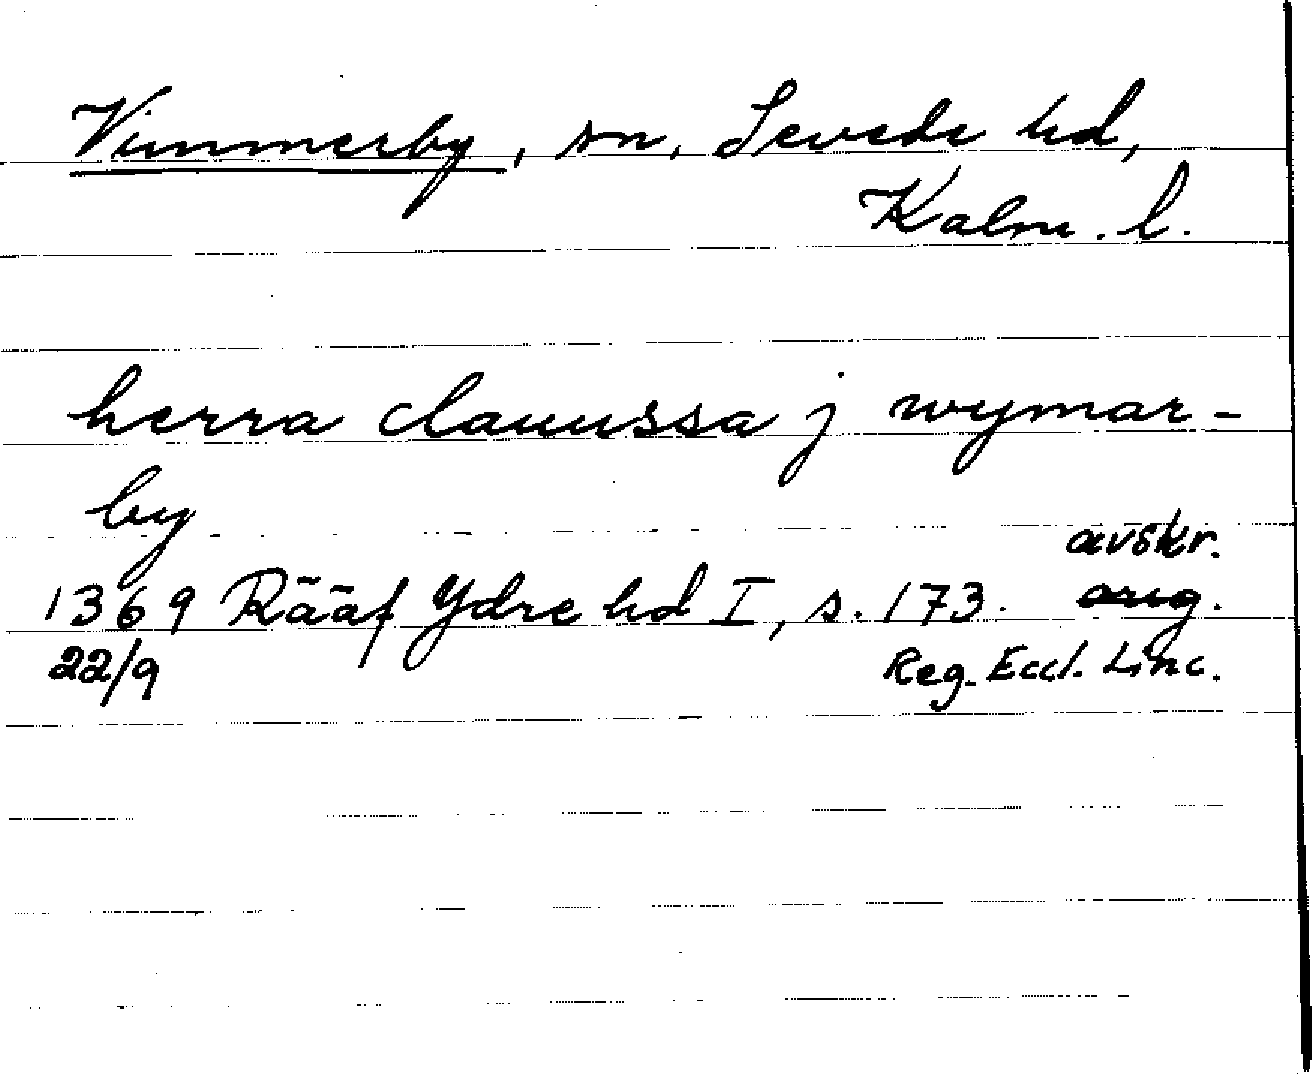 Vimmerby, sn, Sevede hd,
Kalm. l.
herra clauussa j wymar-
by
avskr.
1369 Rääf Ydre hd I, s. 173. orig.
22/9 Reg. Eccl. Linc.